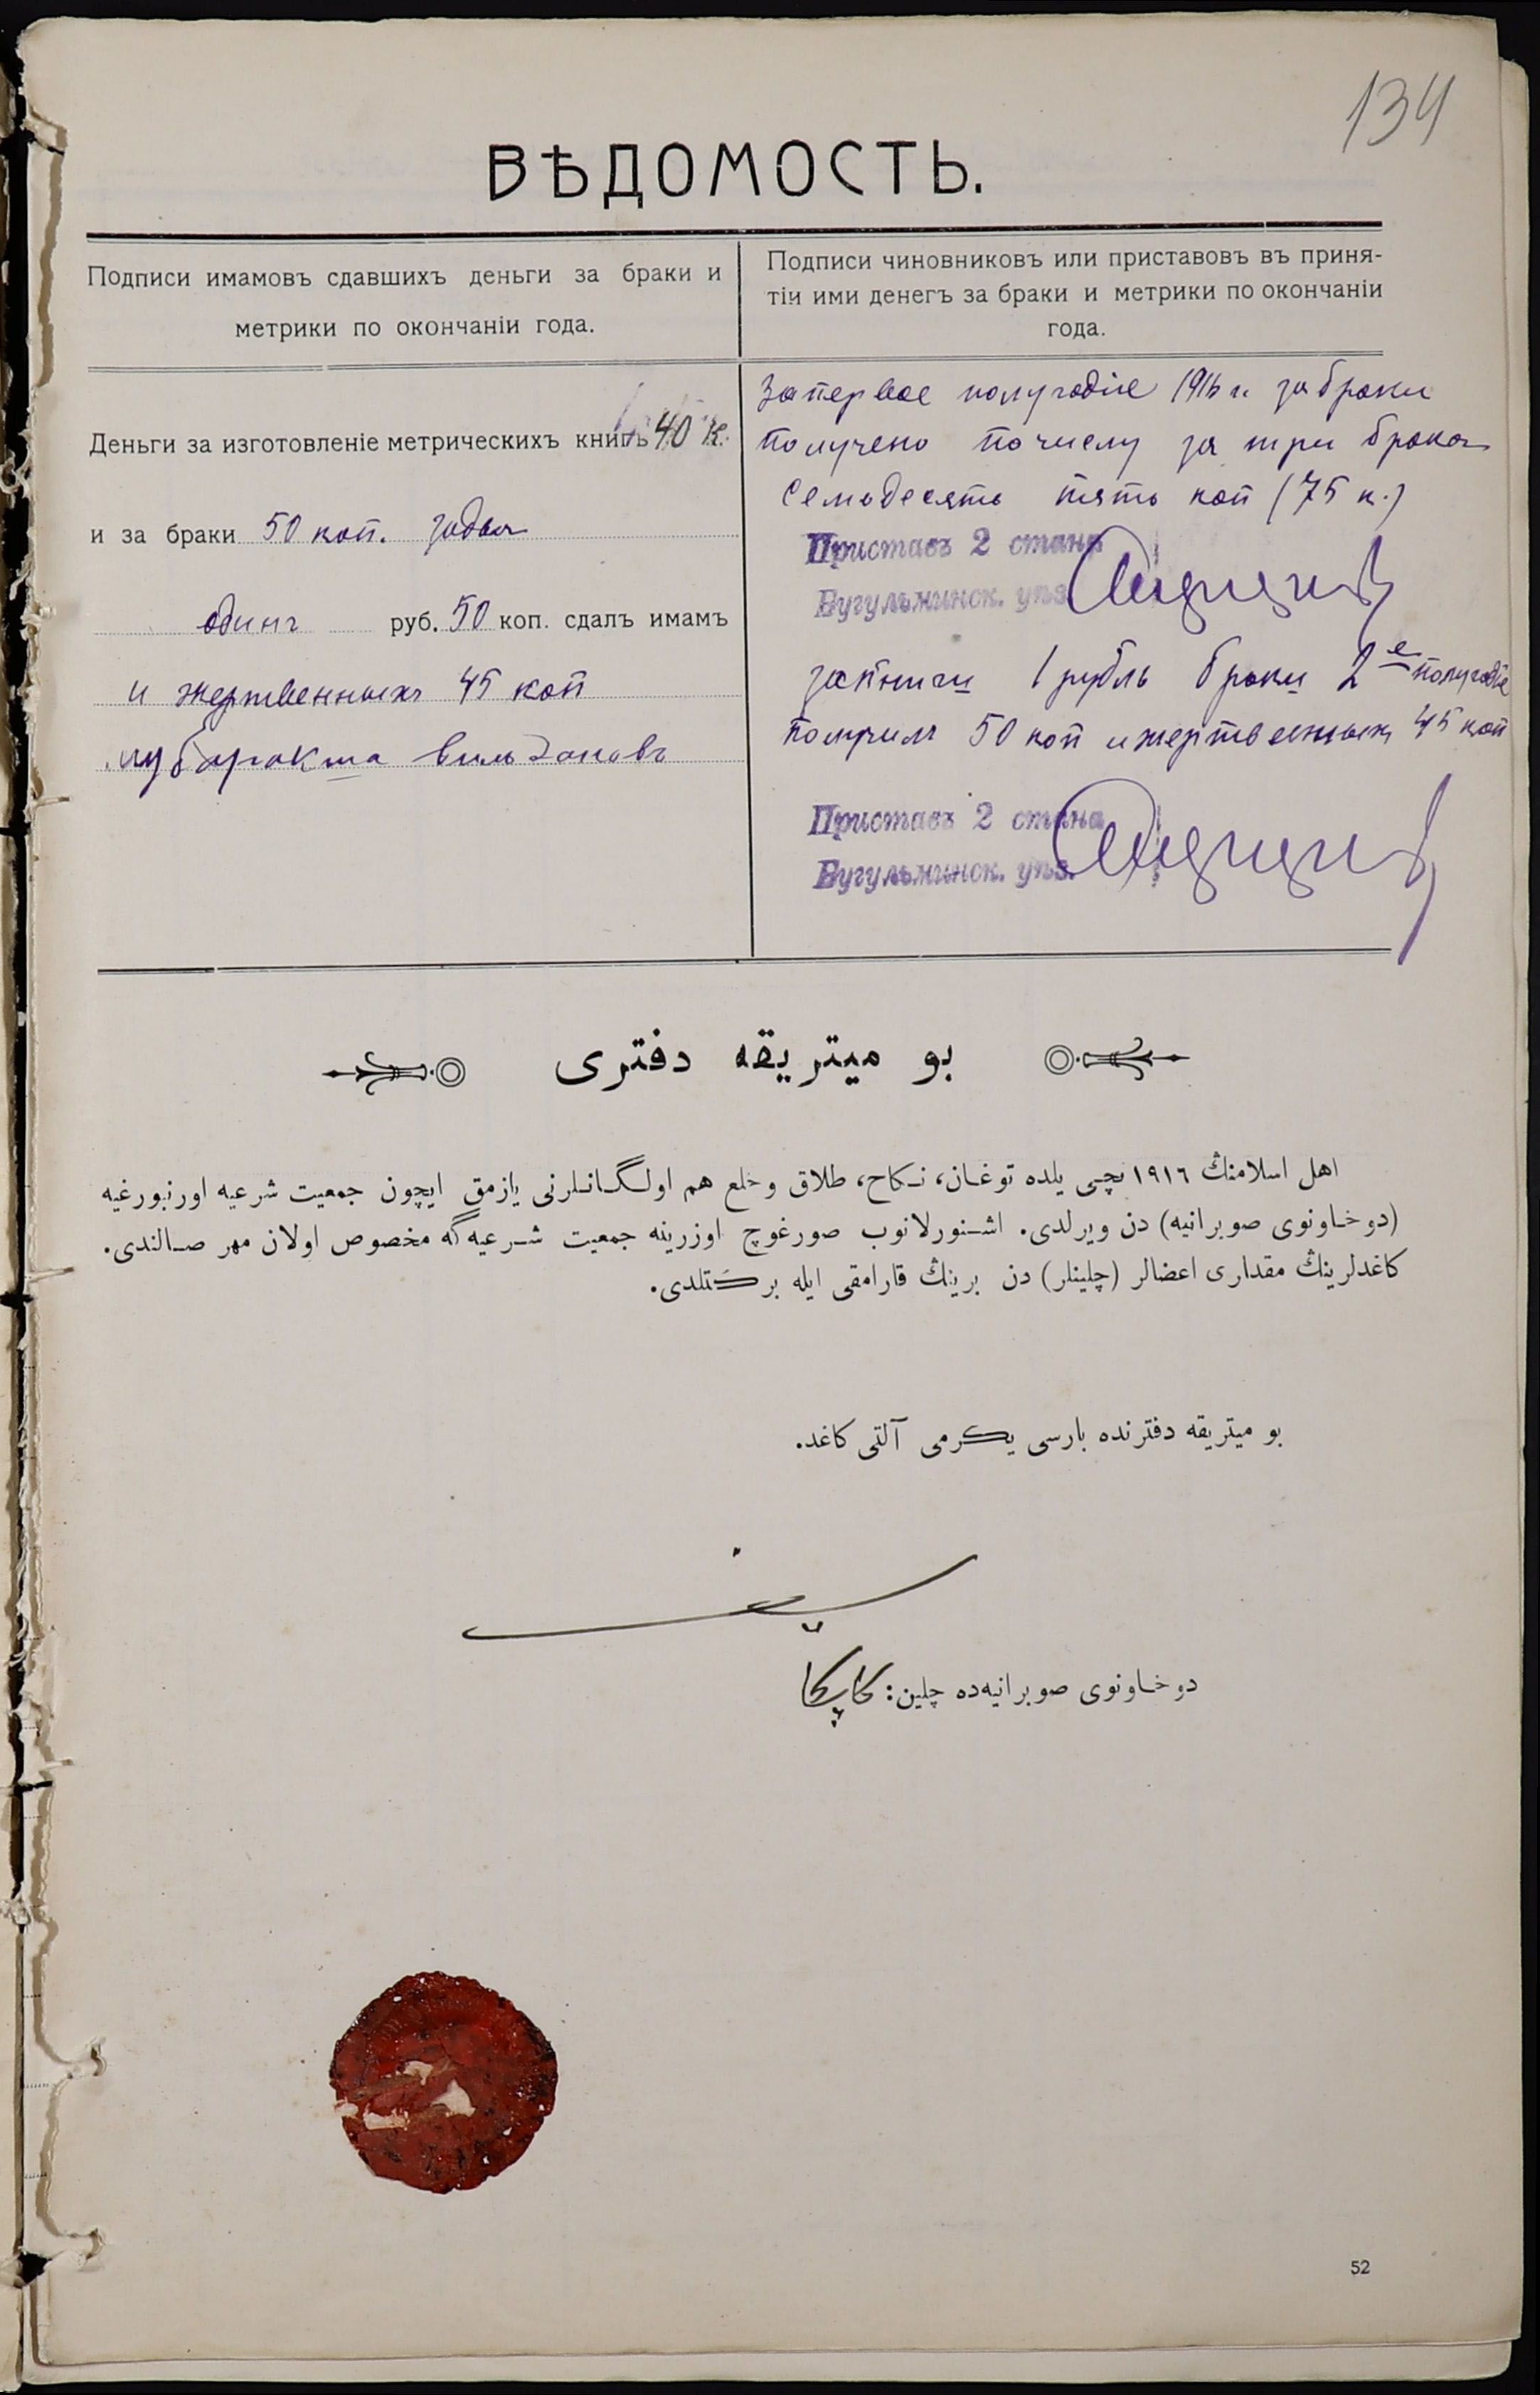 134
ВѢДОМОСТЬ.
Подписи имамовъ сдавшихъ деньги за браки и
метрики по окончаніи года.
Подписи чиновниковъ или приставовъ въ приня-
тіи ими денегъ за браки и метрики по окончаніи
года.
Деньги за изготовленіе метрическихъ книгъ 40 к.
и за браки 50 коп.
одинъ руб. 50 коп. сдалъ имамъ
и жертвенныхъ 45 коп
мубаракша вильдановъ
За первое полугодіе 1916 г. за браки
получено по числу за три брака
семьдесятъ пять коп (75 к.)
Приставъ 2 стана
Бугульминск. уѣз.
за книги 1 рубль браки 2е полугодіе
получилъ 50 коп и жертвенныхъ 45 коп
Приставъ 2 стана
Бугульминск. уѣз.
بو ميتريقه دفترى
اهل اسلامنڭ ١٩١٦ نچى يلده توغان، نكاح، طلاق وخلع هم اولگانلرنى يازمق ايچون جمعيت شرعيه اورنبورغيه
(دوخاونوى صوبرانيه) دن ويرلدى. اشنورلانوب صورغوچ اوزرينه جمعيت شرعيه‌گه مخصوص اولان مهر صالندى.
كاغدلرينڭ مقدارى اعضالر (چلينلر) دن برينڭ قارامقى ايله بركتلدى.
بو ميتريقه دفترنده بارسى يكرمى آلتى كاغد.
دوخاونوى صوبرانيه‌ده چلين:
52